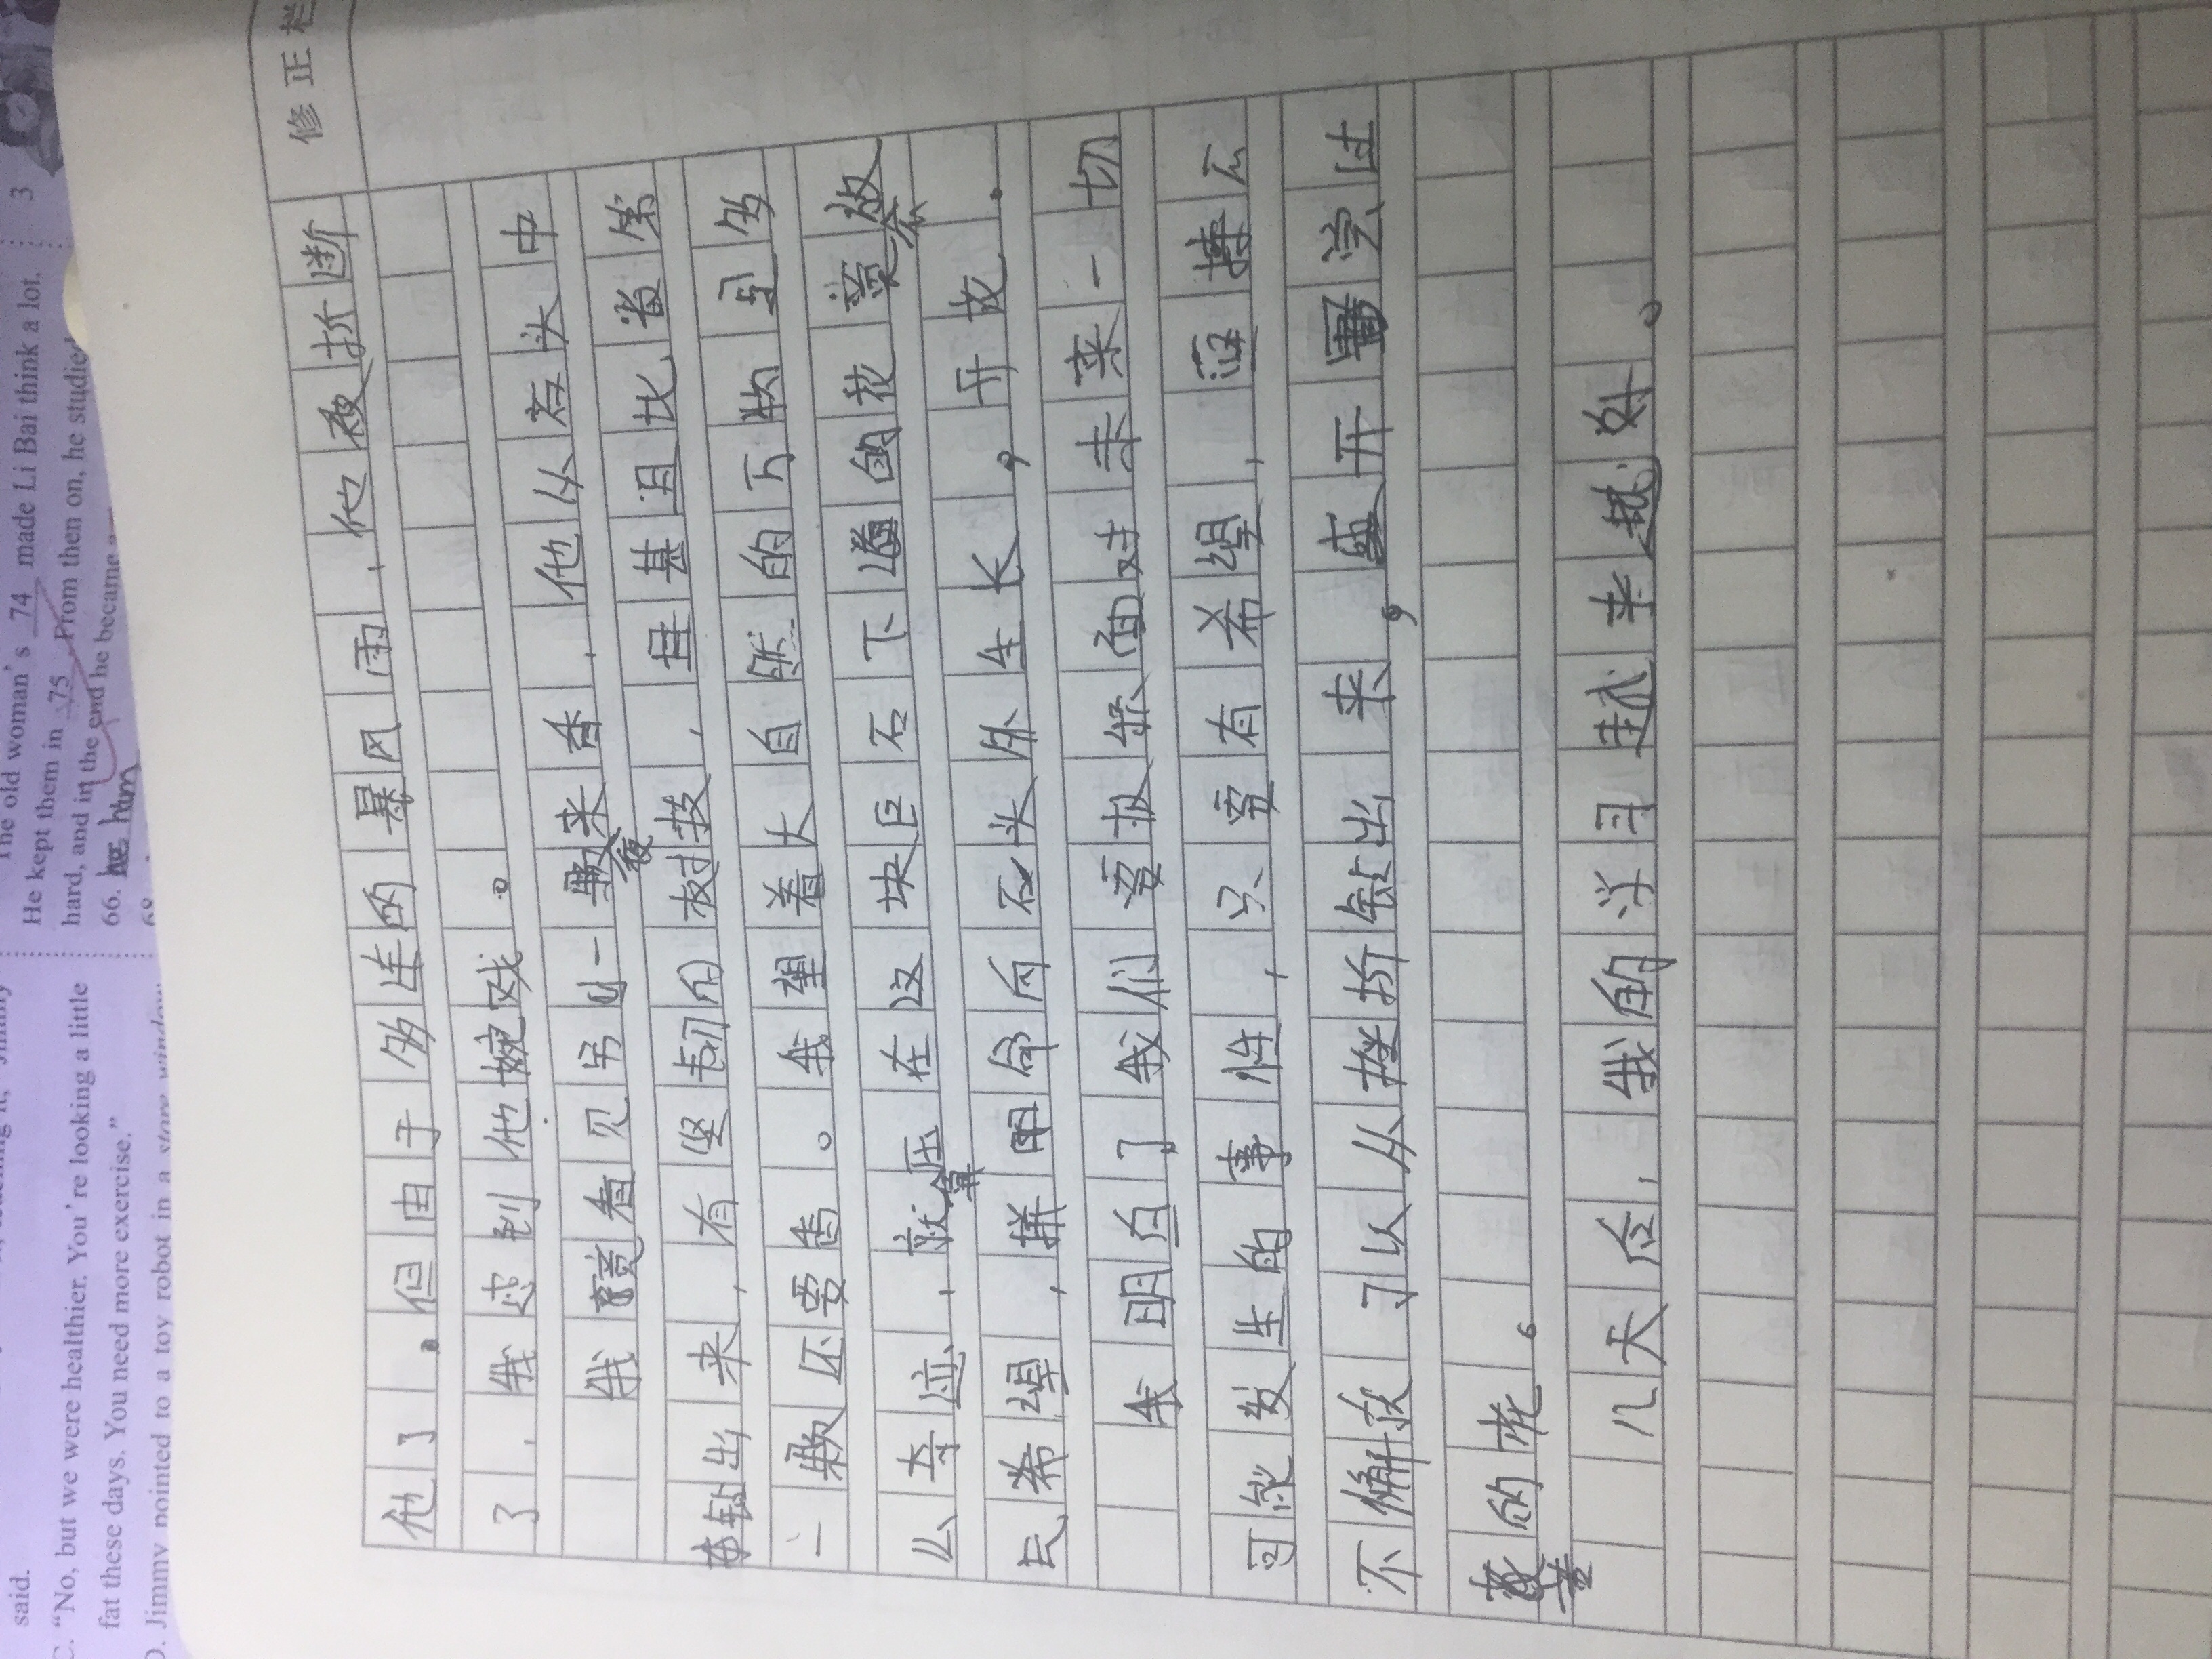 said.
C. “No, but we were healthier. You're looking a little
fat these days. You need more exercise.”
D. Jimmy pointed to a toy robot in a store window.
The old woman's 74 made Li Bai think a lot.
He kept them in 75 From then on, he studied
hard, and in the end he became
66. him
3
修正栏
他了。但由于多连的暴风雨,他被折断
了,我到他。
我竟看见另一颗夜来香,他从石头中
钻出来,有坚韧的树技,且甚且比当第
一颗还要香。我望着大自然的万物多
么奇迹,就算在这块巨石下的花
希望,拼命向石头外生长,开放。
我明白了我们要报怀面对未来一切
可能发生的事件,只要有希望,搏
不懈可以从挫折钻出来,盛开
的花。
几天后,我的学习越来越好。